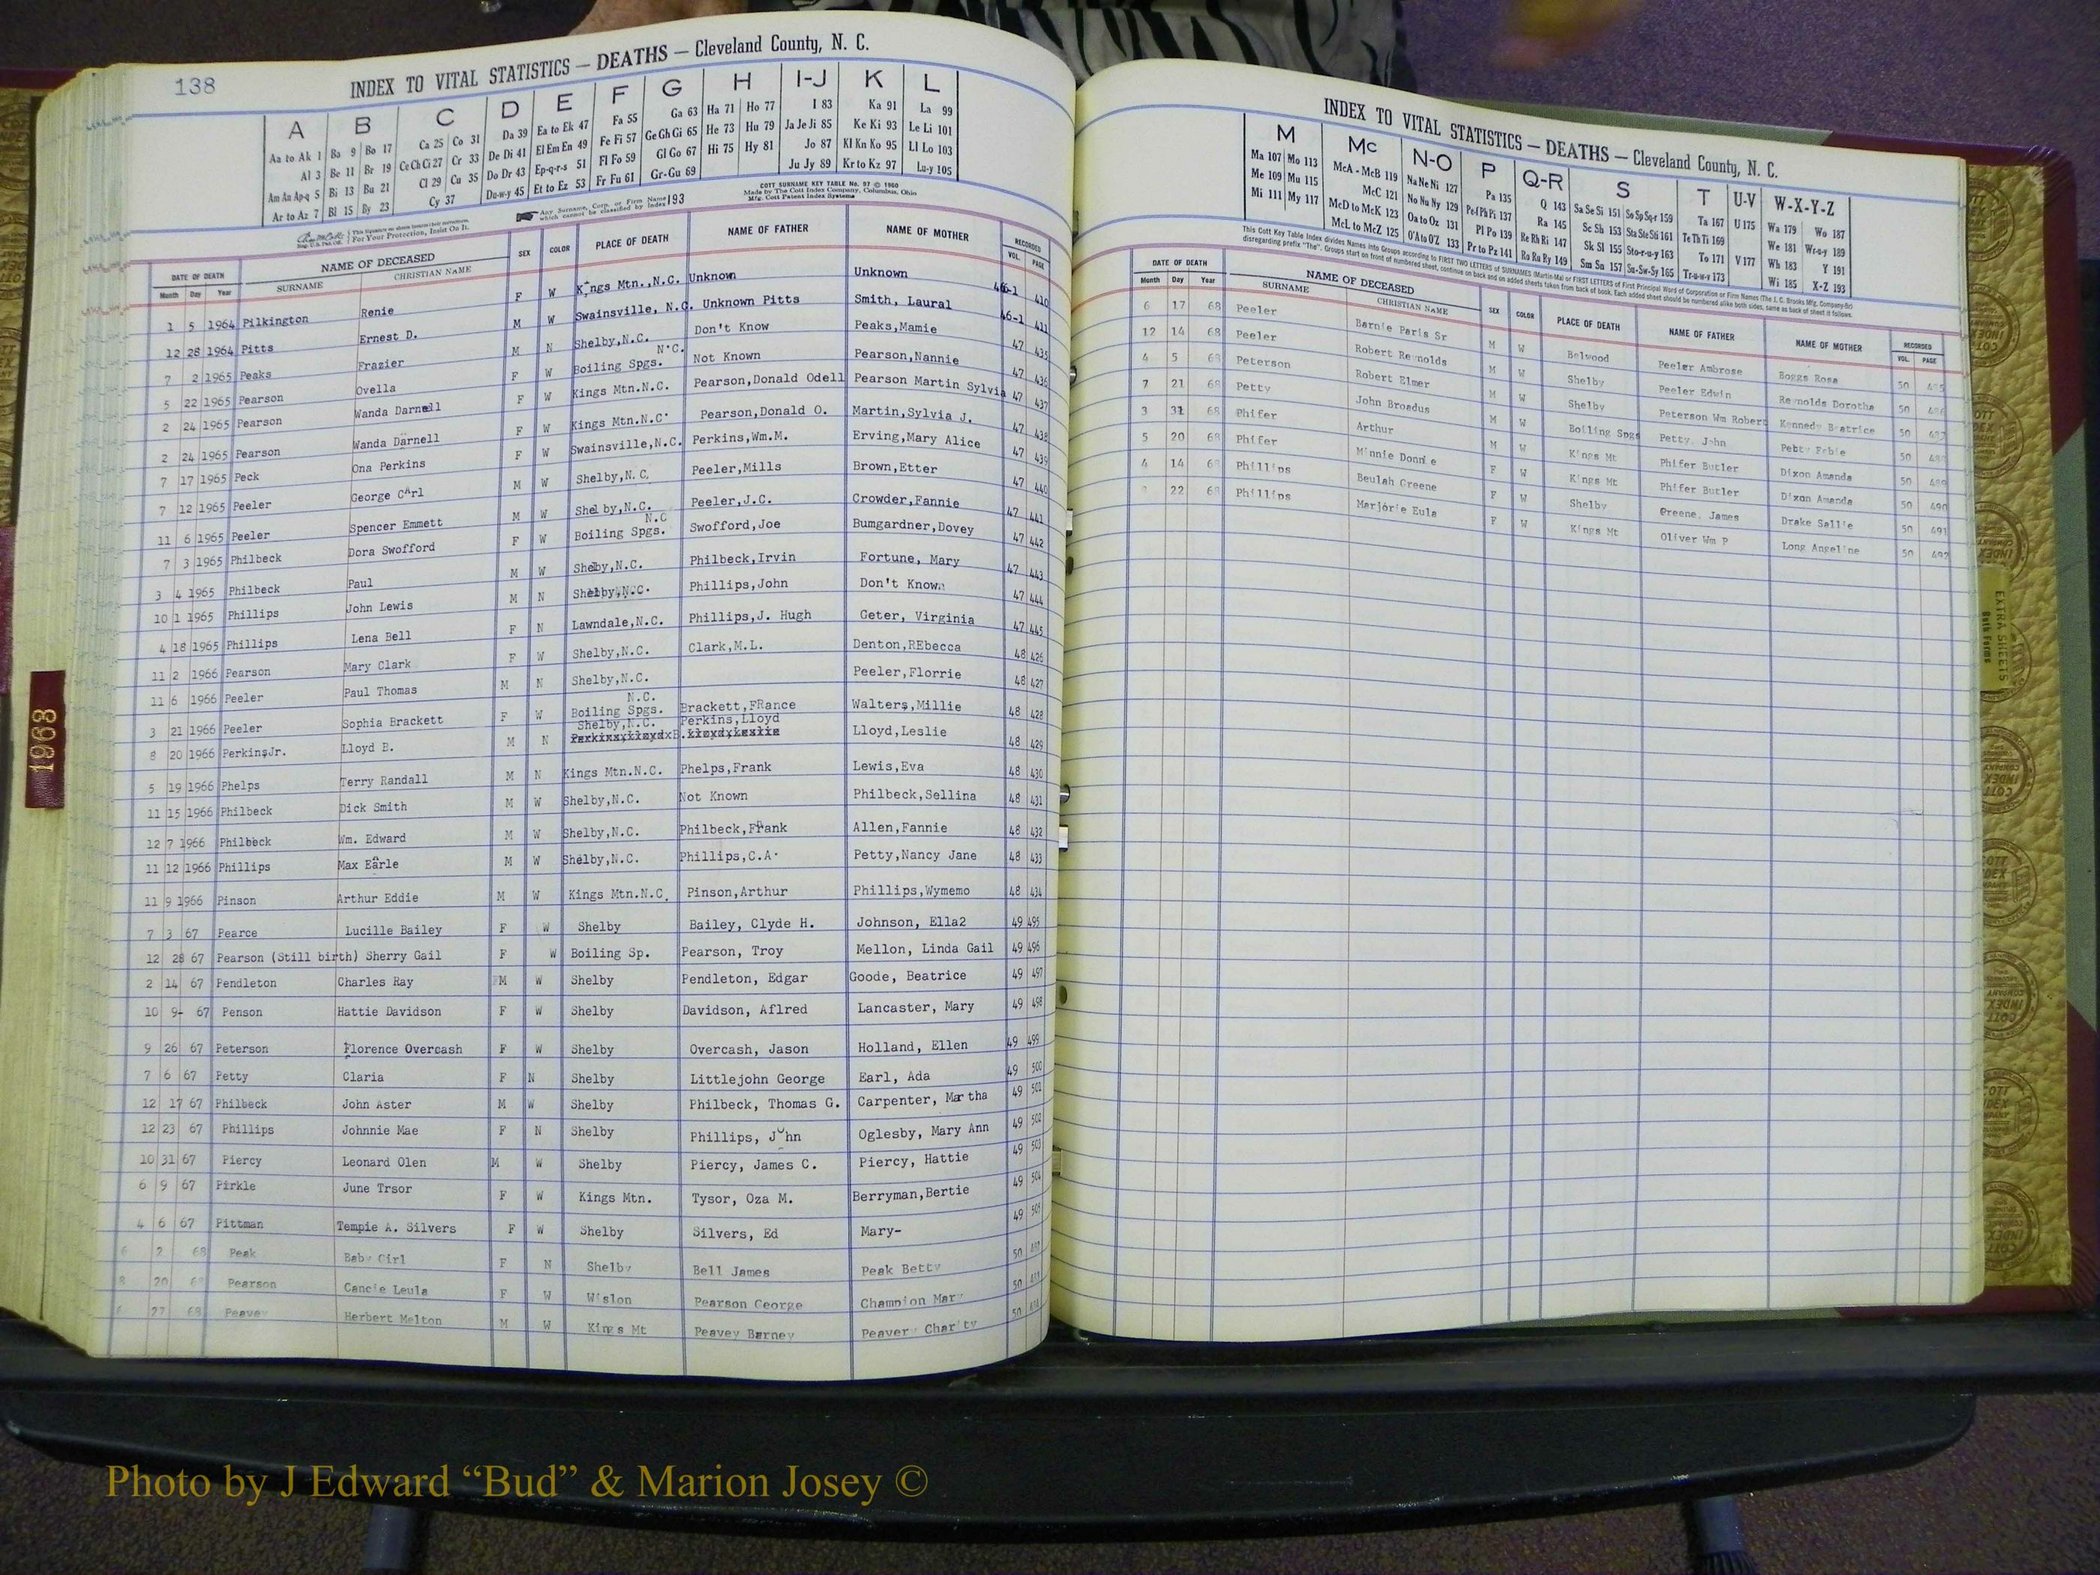 138
INDEX TO VITAL STATISTICS — DEATHS — Cleveland County, N. C.
A B C D E F G H I-J K L
Aa to Ak 1 Ba 9 Bo 17 Ca 25 Co 31 Da 39 Ea to Ek 47 Fa 55 Ga 63 Ha 71 Ho 77 I 83 Ka 91 La 99
Al 3 Be 11 Br 19 Ce Ch Ci 27 Cr 33 De Di 41 El Em En 49 Fe Fi 57 Ge Gh Gi 65 He 73 Hu 79 Ja Je Ji 85 Ke Ki 93 Le Li 101
Am An Ap-q 5 Bi 13 Bu 21 Cl 29 Cu 35 Do Dr 43 Ep-q-r-s 51 Fl Fo 59 Gl Go 67 Hi 75 Hy 81 Jo 87 Kl Kn Ko 95 Ll Lo 103
Ar to Az 7 Bl 15 By 23 Cy 37 Du-w-y 45 Et to Ez 53 Fr Fu 61 Gr-Gu 69 Ju Jy 89 Kr to Kz 97 Lu-y 105
Any Surname, Corp. or Firm Name which cannot be classified by Index 193
COTT SURNAME KEY TABLE No. 97 © 1960
Made by The Cott Index Company, Columbus, Ohio
Mfg. Cott Patent Index Systems
For Your Protection, Insist On It.
DATE OF DEATH NAME OF DECEASED SEX COLOR PLACE OF DEATH NAME OF FATHER NAME OF MOTHER RECORDED
Month Day Year SURNAME CHRISTIAN NAME VOL. PAGE
1 5 1964 Pilkington Renie F W Kings Mtn.,N.C. Unknown Unknown 46-1 410
12 28 1964 Pitts Ernest D. M W Swainsville, N.C. Unknown Pitts Smith, Laural 46-1 411
7 2 1965 Peaks Frazier M N Shelby,N.C. Don't Know Peaks,Mamie 47 435
5 22 1965 Pearson Ovella F W Boiling Spgs. N.C. Not Known Pearson,Nannie 47 436
2 24 1965 Pearson Wanda Darnell F W Kings Mtn.N.C. Pearson,Donald Odell Pearson Martin Sylvia 47 437
2 24 1965 Pearson Wanda Darnell F W Kings Mtn.N.C. Pearson,Donald O. Martin,Sylvia J. 47 438
7 17 1965 Peck Ona Perkins F W Swainsville,N.C. Perkins,Wm.M. Erving,Mary Alice 47 439
7 12 1965 Peeler George Carl M W Shelby,N.C. Peeler,Mills Brown,Etter 47 440
11 6 1965 Peeler Spencer Emmett M W Shelby,N.C. Peeler,J.C. Crowder,Fannie 47 441
7 3 1965 Philbeck Dora Swofford F W Boiling Spgs. N.C Swofford,Joe Bumgardner,Dovey 47 442
3 4 1965 Philbeck Paul M W Shelby,N.C. Philbeck,Irvin Fortune, Mary 47 443
10 1 1965 Phillips John Lewis M N Shelby,N.C. Phillips,John Don't Known 47 444
4 18 1965 Phillips Lena Bell F N Lawndale,N.C. Phillips,J. Hugh Geter, Virginia 47 445
11 2 1966 Pearson Mary Clark F W Shelby,N.C. Clark,M.L. Denton,REbecca 48 426
11 6 1966 Peeler Paul Thomas M N Shelby,N.C. Peeler,Florrie 48 427
3 21 1966 Peeler Sophia Brackett F W Boiling Spgs. N.C. Brackett,FRance Walters,Millie 48 428
8 20 1966 Perkins,Jr. Lloyd B. M N Shelby,N.C. Perkins,Lloyd Lloyd,Leslie 48 429
5 19 1966 Phelps Terry Randall M N Kings Mtn.N.C. Phelps,Frank Lewis,Eva 48 430
11 15 1966 Philbeck Dick Smith M W Shelby,N.C. Not Known Philbeck,Sellina 48 431
12 7 1966 Philbeck Wm. Edward M W Shelby,N.C. Philbeck,Frank Allen,Fannie 48 432
11 12 1966 Phillips Max Earle M W Shelby,N.C. Phillips,C.A. Petty,Nancy Jane 48 433
11 9 1966 Pinson Arthur Eddie M W Kings Mtn.N.C. Pinson,Arthur Phillips,Wymemo 48 434
7 3 67 Pearce Lucille Bailey F W Shelby Bailey, Clyde H. Johnson, Ella2 49 495
12 28 67 Pearson (Still birth) Sherry Gail F W Boiling Sp. Pearson, Troy Mellon, Linda Gail 49 496
2 14 67 Pendleton Charles Ray M W Shelby Pendleton, Edgar Goode, Beatrice 49 497
10 9- 67 Penson Hattie Davidson F W Shelby Davidson, Aflred Lancaster, Mary 49 498
9 26 67 Peterson Florence Overcash F W Shelby Overcash, Jason Holland, Ellen 49 499
7 6 67 Petty Claria F N Shelby Littlejohn George Earl, Ada 49 500
12 17 67 Philbeck John Aster M W Shelby Philbeck, Thomas G. Carpenter, Martha 49 501
12 23 67 Phillips Johnnie Mae F N Shelby Phillips, John Oglesby, Mary Ann 49 502
10 31 67 Piercy Leonard Olen M W Shelby Piercy, James C. Piercy, Hattie 49 503
6 9 67 Pirkle June Trsor F W Kings Mtn. Tysor, Oza M. Berryman,Bertie 49 504
4 6 67 Pittman Tempie A. Silvers F W Shelby Silvers, Ed Mary- 49 505
6 2 68 Peak Baby Girl F N Shelby Bell James Peak Betty 50
8 20 68 Pearson Cancie Leula F W Wislon Pearson George Champion Mary 50
6 27 68 Peavey Herbert Melton M W Kings Mt Peavey Barney Peavery Charity 50
INDEX TO VITAL STATISTICS — DEATHS — Cleveland County, N. C.
M Mc N-O P Q-R S T U-V W-X-Y-Z
Ma 107 Mo 113 McA - McB 119 Na Ne Ni 127 Pa 135 Q 143 Sa Se Si 151 So Sp Sq-r 159 Ta 167 U 175 Wa 179 Wo 187
Me 109 Mu 115 McC 121 No Nu Ny 129 Pe-f Ph Pi 137 Ra 145 Sc Sh 153 Sta Ste Sti 161 Te Th Ti 169 We 181 Wr-e-y 189
Mi 111 My 117 McD to McK 123 Oa to Oz 131 Pl Po 139 Re Rh Ri 147 Sk Sl 155 Sto-r-u-y 163 To 171 V 177 Wh 183 Y 191
McL to McZ 125 O'A to O'Z 133 Pr to Pz 141 Ro Ru Ry 149 Sm Sn 157 Su-Sw-Sy 165 Tr-u-w-y 173 Wi 185 X-Z 193
This Cott Key Table Index divides Names into Groups according to FIRST TWO LETTERS of SURNAMES (Martin-Ma) or FIRST LETTERS of First Principal Word of Corporation or Firm Names (The J. C. Brooks Mfg. Company-Br)
disregarding prefix "The". Groups start on front of numbered sheet, continue on back and on added sheets taken from back of book. Each added sheet should be numbered alike both sides, same as back of sheet it follows.
DATE OF DEATH NAME OF DECEASED SEX COLOR PLACE OF DEATH NAME OF FATHER NAME OF MOTHER RECORDED
Month Day Year SURNAME CHRISTIAN NAME VOL. PAGE
6 17 68 Peeler Barnie Paris Sr M W Belwood Peeler Ambrose Boggs Rosa 50 485
12 14 68 Peeler Robert Reynolds M W Shelby Peeler Edwin Reynolds Dorothe 50 486
4 5 68 Peterson Robert Elmer M W Shelby Peterson Wm Robert Kennedy Beatrice 50 487
7 21 68 Petty John Broadus M W Boiling Spgs Petty, John Petty Febie 50 488
3 31 68 Phifer Arthur M W Kings Mt Phifer Butler Dixon Amanda 50 489
5 20 68 Phifer Minnie Donnie F W Kings Mt Phifer Butler Dixon Amanda 50 490
4 14 68 Phillips Beulah Greene F W Shelby Greene, James Drake Sallie 50 491
22 68 Phillips Marjorie Eula F W Kings Mt Oliver Wm P Long Angeline 50 492
1968
EXTRA SHEETS
Both Forms
Photo by J Edward “Bud” & Marion Josey ©